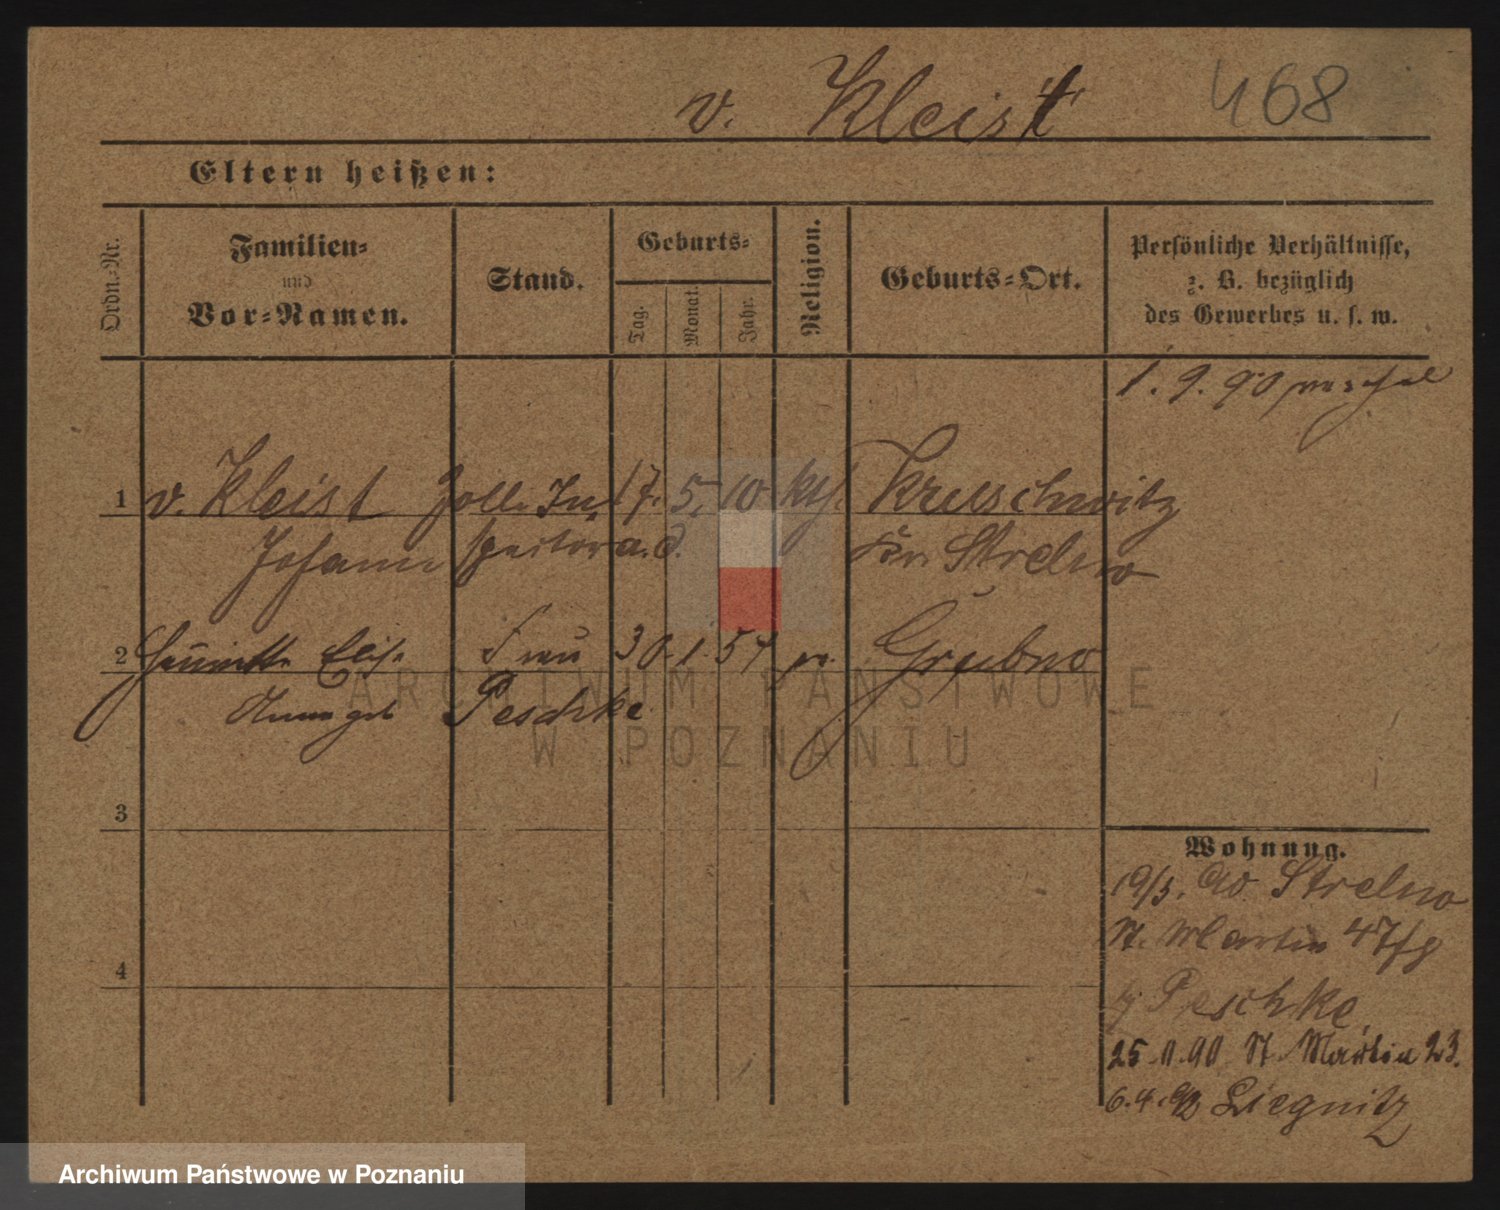 v. Kleist 468
Eltern heißen:
Ordn.-Nr.
Familien-
und
Vor-Namen.
Stand.
Geburts-
Tag.
Monat.
Jahr.
Religion.
Geburts-Ort.
Persönliche Verhältnisse,
z. B. bezüglich
des Gewerbes u. s. w.
1. 9. 90
1 v. Kleist Zoll. In 17. 5. 10 kth. Kruschwitz
Johann spector a. d. Kr Strelno
2 Henriette Elise Frau 30. 1. 54 Grubno
Anna geb Peschke
3
4
Wohnung.
19/5. 90 Strelno
St. Martin 47
Peschke
25.11.90 St. Martin 23.
6.4.92 Liegnitz
ARCHIWUM PAŃSTWOWE
W POZNANIU
Archiwum Państwowe w Poznaniu